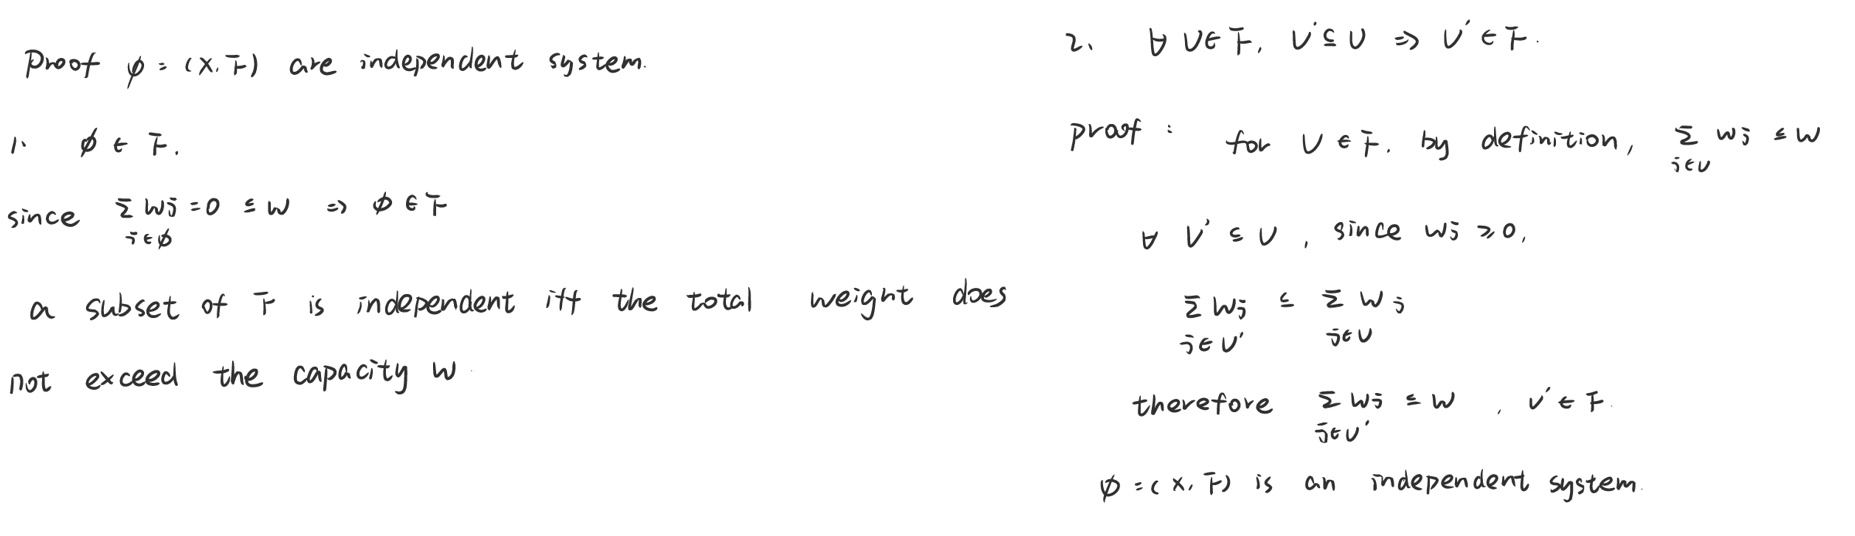 Proof φ = (X, F) are independent system.
1. φ ∈ F.
since Σ wj = 0 ≤ W ⇒ φ ∈ F
j∈φ
a subset of F is independent iff the total weight does
not exceed the capacity W
2. ∀ U∈F, U'⊆U ⇒ U'∈F.
proof : for U∈F. by definition, Σ wj ≤ W
j∈U
∀ U' ⊆ U, since wj ≥ 0,
Σ wj ≤ Σ wj
j∈U' j∈U
therefore Σ wj ≤ W, U'∈F.
j∈U'
φ = (X, F) is an independent system.